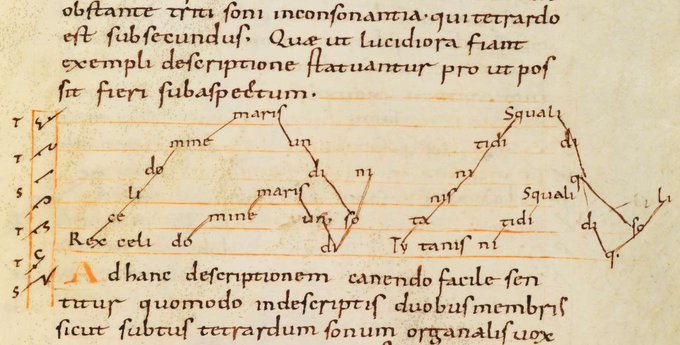 obstante triti soni inconsonantia· qui tetrardo
est subsecundus. Quæ ut lucidiora fiant
exempli descriptione statuantur pro ut pos
sit fieri subaspectum.
T maris Squali
mine un tidi di
T do di ni ni q
S li maris nis Squali li
T ce mine un so ta tidi di so
T Rex celi do di Ty tanis ni q.
T
S
Ad hanc descriptionem canendo facile sen
titur quomodo indescriptis duobus membris
sicut subtus tetrardum sonum organalis vox